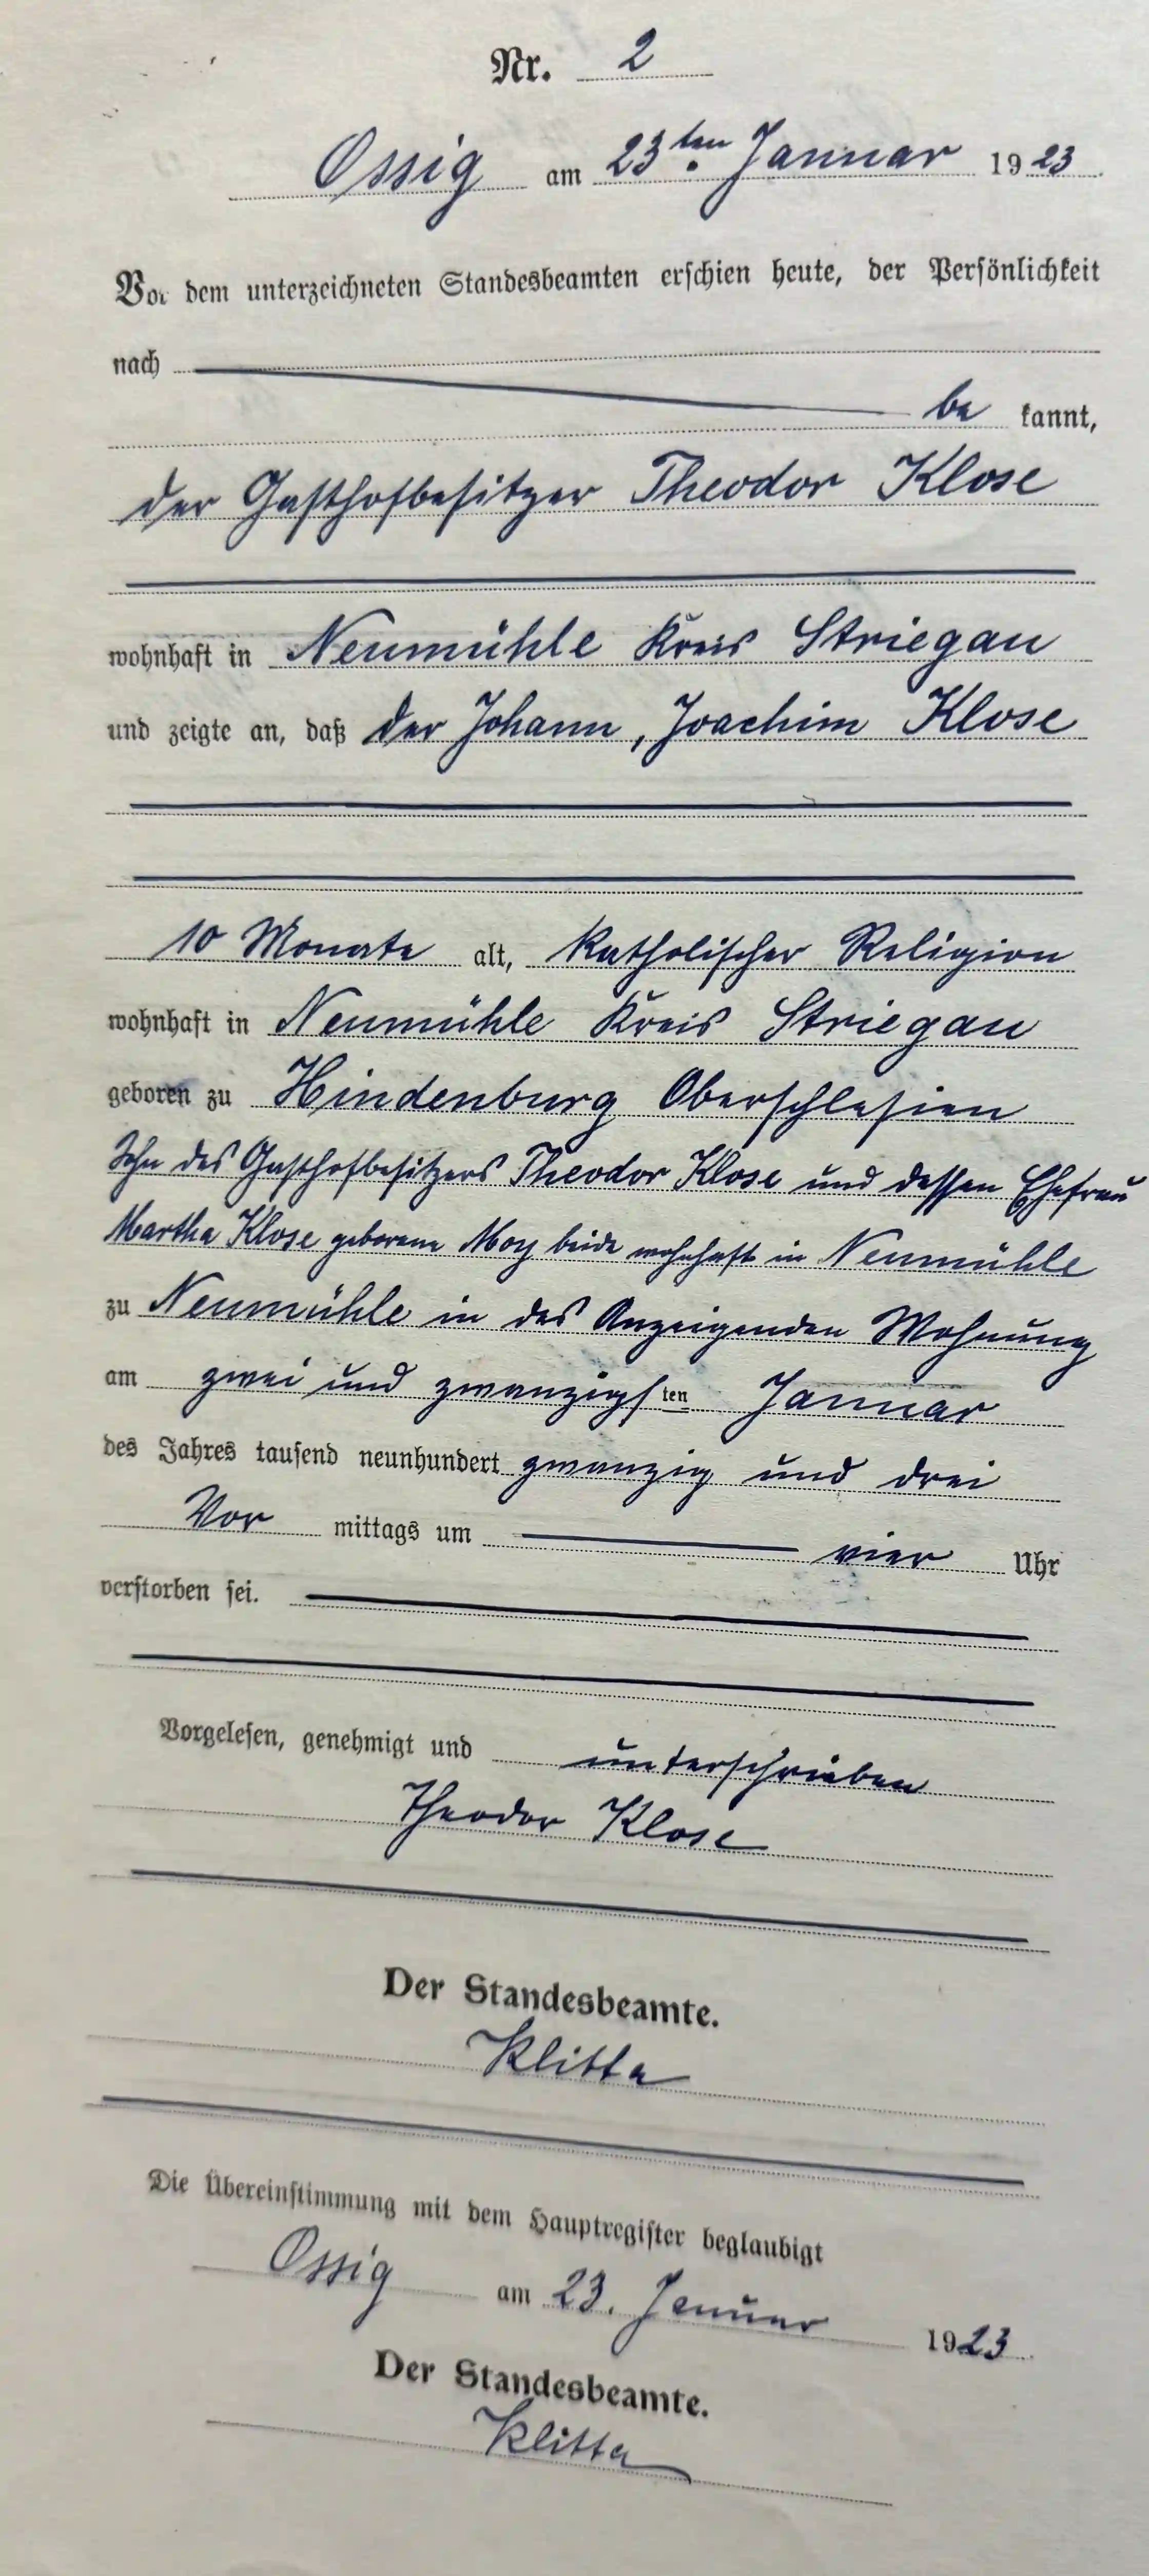 Nr. 2
Ossig am 23ten Januar 1923
Vor dem unterzeichneten Standesbeamten erschien heute, der Persönlichkeit
nach
be kannt,
der Gasthofbesitzer Theodor Klose
wohnhaft in Neumühle Kreis Striegau
und zeigte an, daß der Johann, Joachim Klose
10 Monate alt, katholischer Religion
wohnhaft in Neumühle Kreis Striegau
geboren zu Hindenburg Oberschlesien
Sohn des Gasthofbesitzers Theodor Klose und dessen Ehefrau
Martha Klose geborene Moy beide wohnhaft in Neumühle
zu Neumühle in des Anzeigenden Wohnung
am zwei und zwanzigsten Januar
des Jahres tausend neunhundert zwanzig und drei
Vor mittags um vier Uhr
verstorben sei.
Vorgelesen, genehmigt und unterschrieben
Theodor Klose
Der Standesbeamte.
Klitta
Die Übereinstimmung mit dem Hauptregister beglaubigt
Ossig am 23. Januar 1923
Der Standesbeamte.
Klitta